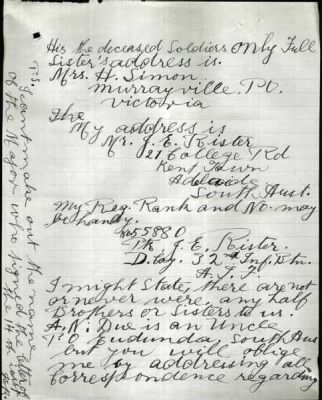 His the deceased Soldiers only Full
Sister's address is.
Mrs. H. Simon
Murrayville. P.O.
Victoria
The
My address is
Mr. J. E. Rister
21 College Rd
Kent Town
Adelaide
South Aust.
My Reg. Rank and No. may
be handy.
No 5588 O
Pte. J. E. Rister.
D. Coy. 32nd Inf. Btn.
A. I. F.
I might State, there are not
or never were, any half
Brothers or Sisters to us.
A. N. Due is an Uncle
P.O Eudunda, South Aus
but you will oblige
me by addressing all
Correspondence regarding
P.S. I cant make out the name
of the Major who signed the letter of
the